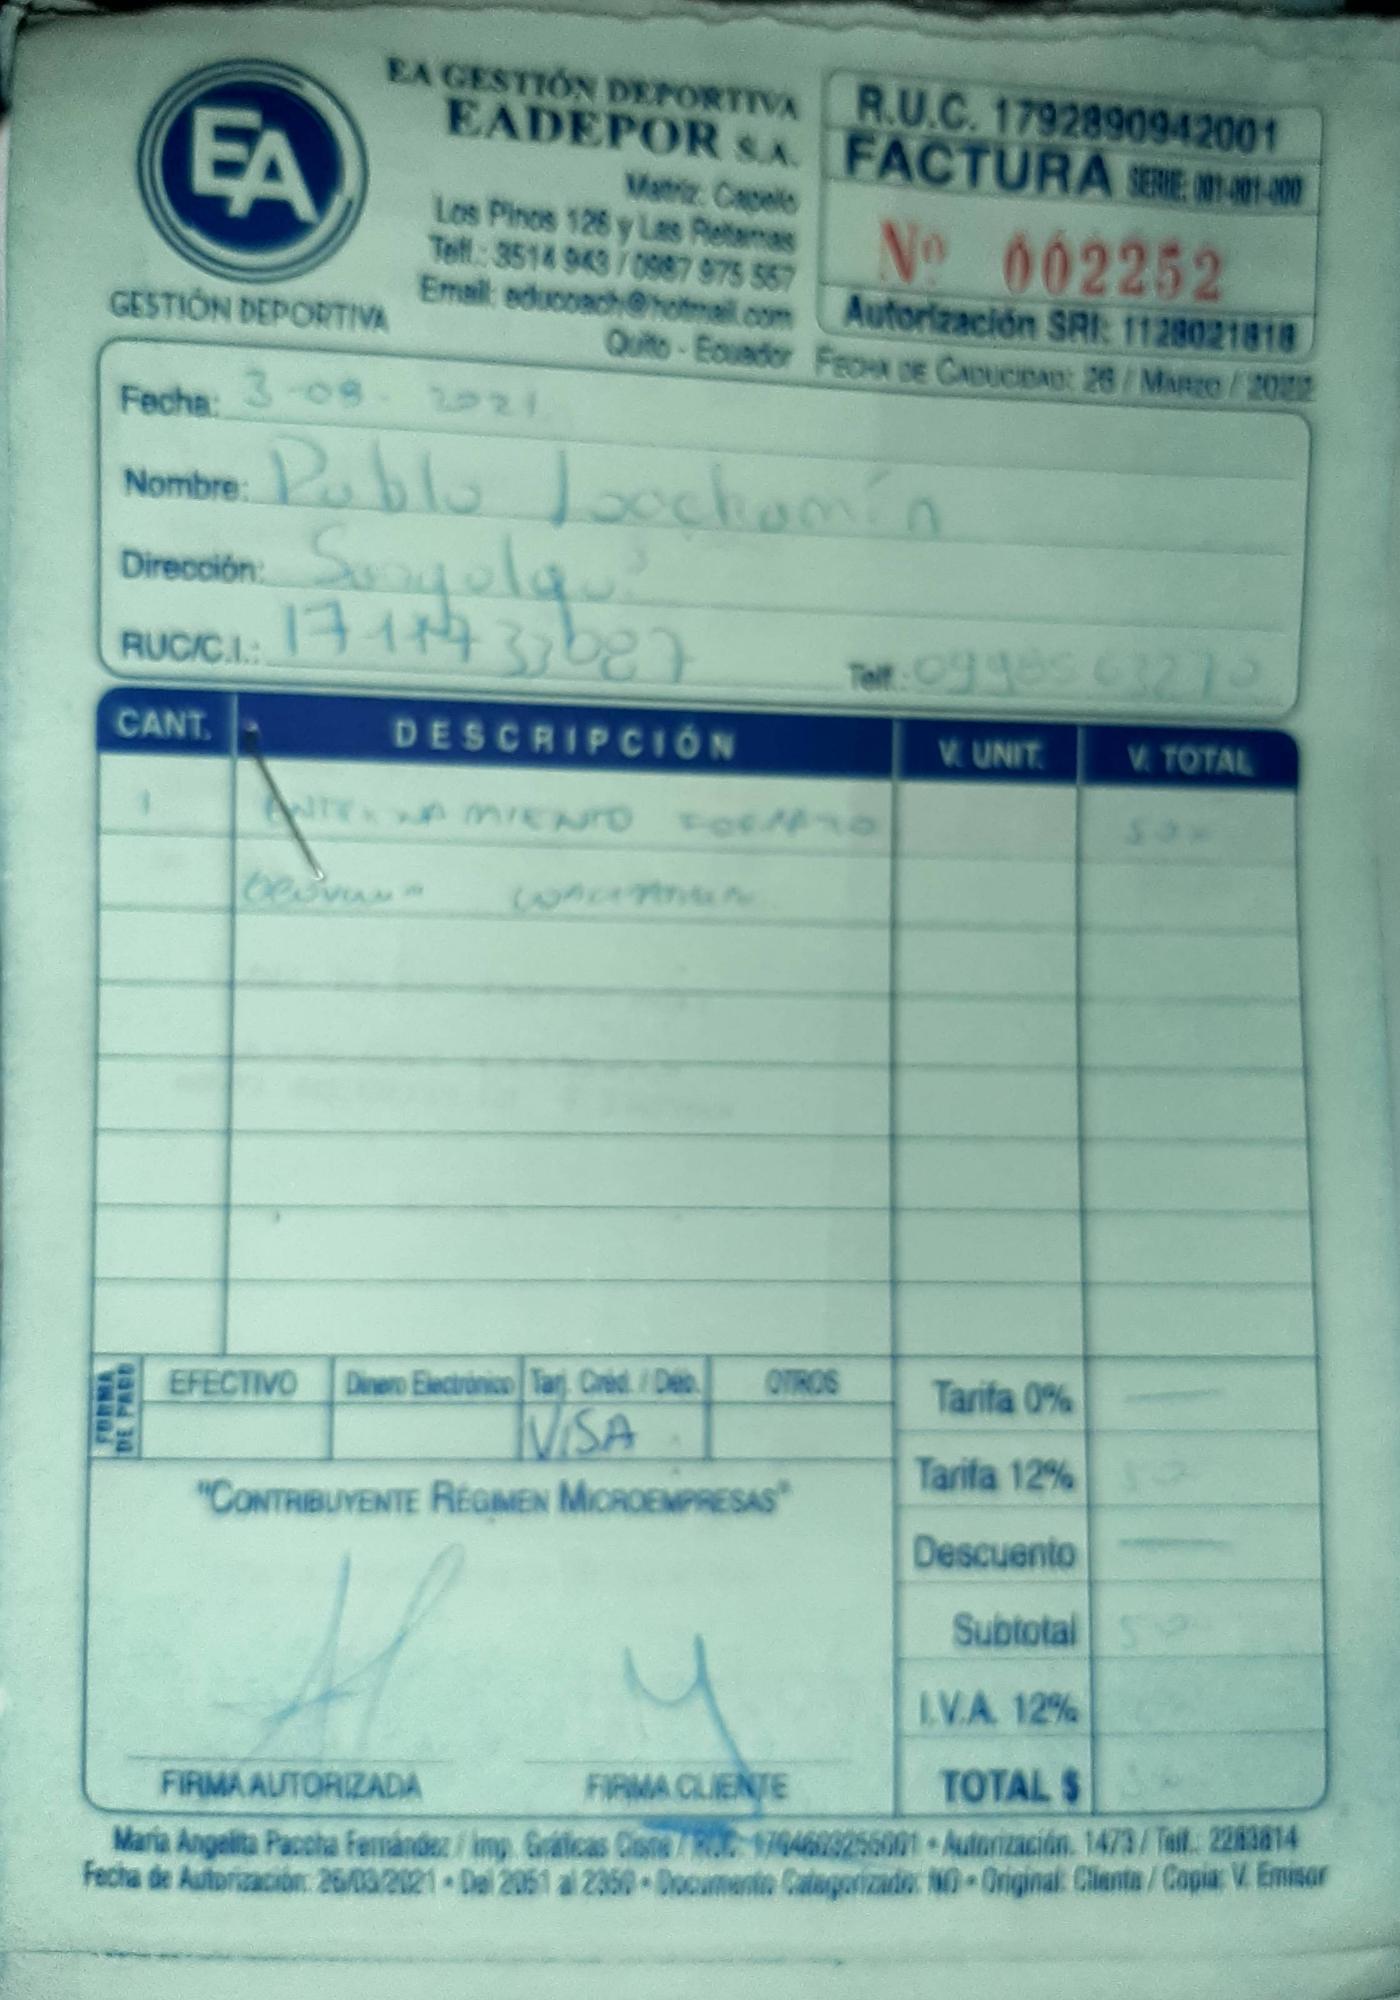 EA
GESTIÓN DEPORTIVA
EA GESTIÓN DEPORTIVA
EADEPOR S.A.
Matriz: Capelo
Los Pinos 126 y Las Retamas
Telf.: 3514 943 / 0987 975 557
Email: educoach@hotmail.com
Quito - Ecuador
R.U.C. 1792890942001
FACTURA SERIE: 001-001-000
Nº 002252
Autorización SRI: 1128021818
FECHA DE CADUCIDAD: 26 / MARZO / 2022
Fecha: 3-08-2021
Nombre: Pablo
Dirección: Sangolquí
RUC/C.I.:
Telf.:
CANT. DESCRIPCIÓN V. UNIT. V. TOTAL
1
50
FORMA DE PAGO
EFECTIVO Dinero Electrónico Tarj. Créd. / Déb. OTROS
VISA
"CONTRIBUYENTE RÉGIMEN MICROEMPRESAS"
Tarifa 0% —
Tarifa 12% 50
Descuento —
Subtotal 50
I.V.A. 12%
TOTAL $
FIRMA AUTORIZADA FIRMA CLIENTE
María Angelita Paccha Fernández / Imp. Gráficas Cisne / RUC: • Autorización. 1473 / Telf.: 2283814
Fecha de Autorización: 26/03/2021 • Del 2051 al 2350 • Documento Categorizado: NO • Original: Cliente / Copia: V. Emisor